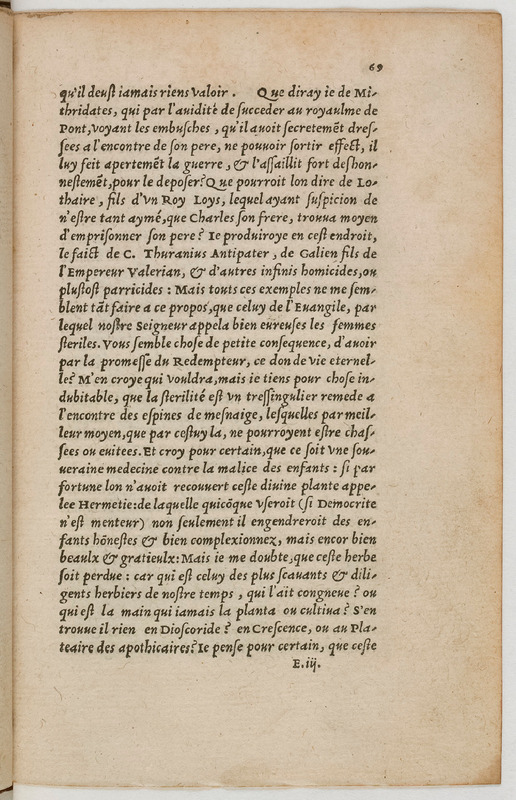 69
qu'il deust iamais riens valoir. Que diray ie de Mi-
thridates, qui par l'auidité de succeder au royaulme de
Pont, voyant les embusches, qu'il auoit secretemẽt dres-
sees a l'encontre de son pere, ne pouuoir sortir effect, il
luy feit apertemẽt la guerre, & l'assaillit fort deshon-
nestemẽt, pour le deposer? Que pourroit lon dire de Lo-
thaire, fils d'vn Roy Loys, lequel ayant suspicion de
n'estre tant aymé, que Charles son frere, trouua moyen
d'emprisonner son pere? Ie produiroye en cest endroit,
le faict de C. Thuranius Antipater, de Galien fils de
l'Empereur Valerian, & d'autres infinis homicides, ou
plustost parricides: Mais touts ces exemples ne me sem-
blent tãt faire a ce propos, que celuy de l'Euangile, par
lequel nostre Seigneur appela bien eureuses les femmes
steriles. Vous semble chose de petite consequence, d'auoir
par la promesse du Redempteur, ce don de vie eternel-
le? M'en croye qui vouldra, mais ie tiens pour chose in-
dubitable, que la sterilité est vn tressingulier remede a
l'encontre des espines de mesnaige, lesquelles par meil-
leur moyen, que par cestuy la, ne pourroyent estre chas-
sees ou euitees. Et croy pour certain, que ce soit vne sou-
ueraine medecine contre la malice des enfants: si par
fortune lon n'auoit recouuert ceste diuine plante appe-
lee Hermetie: de laquelle quicõque vseroit (si Democrite
n'est menteur) non seulement il engendreroit des en-
fants hõnestes & bien complexionnez, mais encor bien
beaulx & gratieulx: Mais ie me doubte, que ceste herbe
soit perdue: car qui est celuy des plus scauants & dili-
gents herbiers de nostre temps, qui l'ait congneue? ou
qui est la main qui iamais la planta ou cultiua? S'en
trouue il rien en Dioscoride? en Crescence, ou au Pla-
teaire des apothicaires? Ie pense pour certain, que ceste
E.iij.